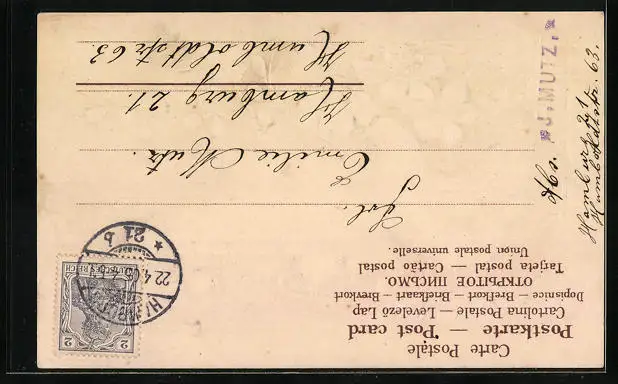 Carte Postale
Postkarte — Post card
Cartolina Postale — Levelező Lap
Dopisnice — Brefkort — Briefkaart — Brevkort
ОТКРЫТОЕ ПИСЬМО.
Tarjeta postal — Cartão postal
Union postale universelle.
2 2
DEUTSCHES REICH
HAMBURG
22.4.05
* 21 b
Frl.
Emilie Mutz.
Hamburg 21.
Humboldtstr 63.
Abs.
* J. MUTZ. *
Hamburg 21
Humboldtstr. 63.